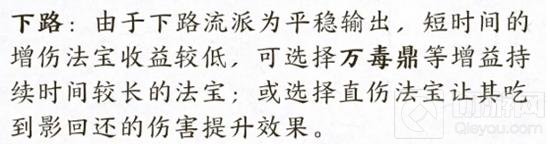 下路：由于下路流派为平稳输出，短时间的
增伤法宝收益较低，可选择万毒鼎等增益持
续时间较长的法宝；或选择直伤法宝让其吃
到影回还的伤害提升效果。
Qieyou.com